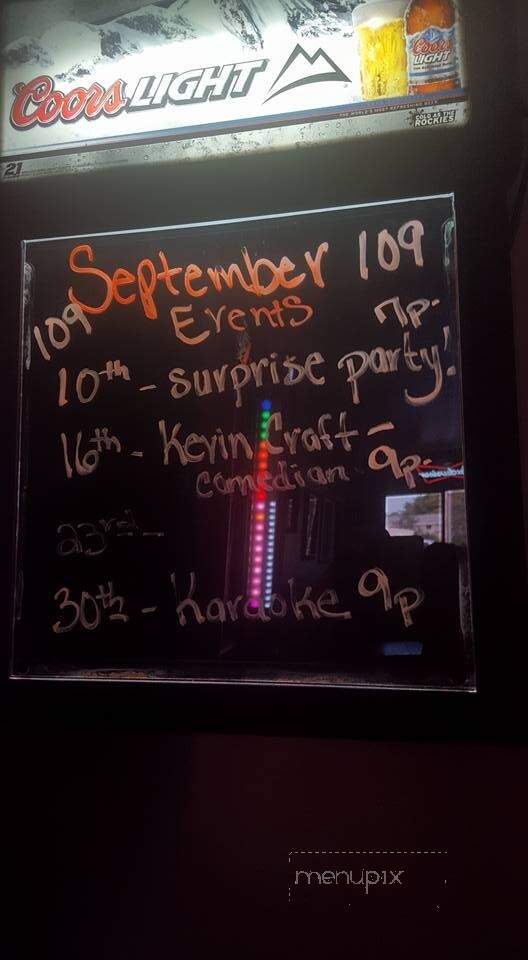 Coors LIGHT
Coors
LIGHT
THE WORLD'S MOST REFRESHING BEER
COLD AS THE
ROCKIES
21
September 109
109 Events 7p-
10th - surprise party!
16th - Kevin Craft -
comedian 9p-
23rd -
30th - Karaoke 9p
menupix